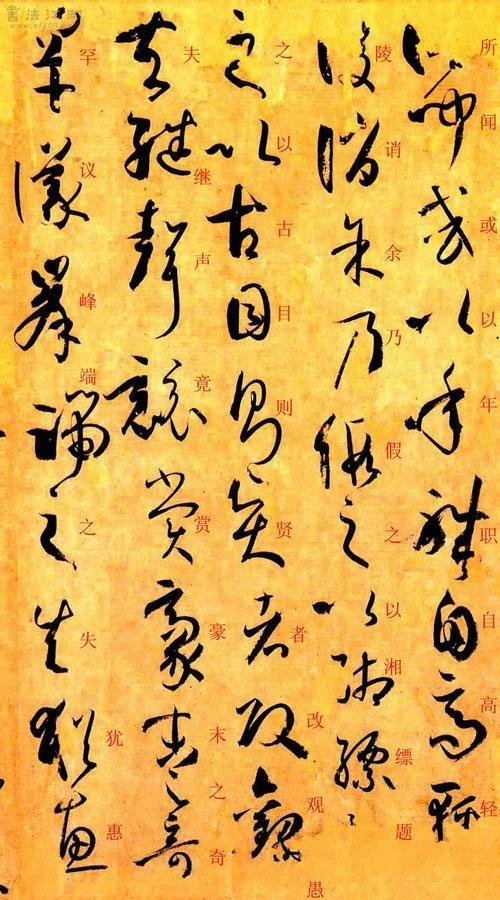 所闻或以年职自高轻
陵诮余乃假之以湘缥题
之以古目则贤者改观愚
夫继声竟赏豪末之奇
罕议峰端之失犹惠
書法江湖